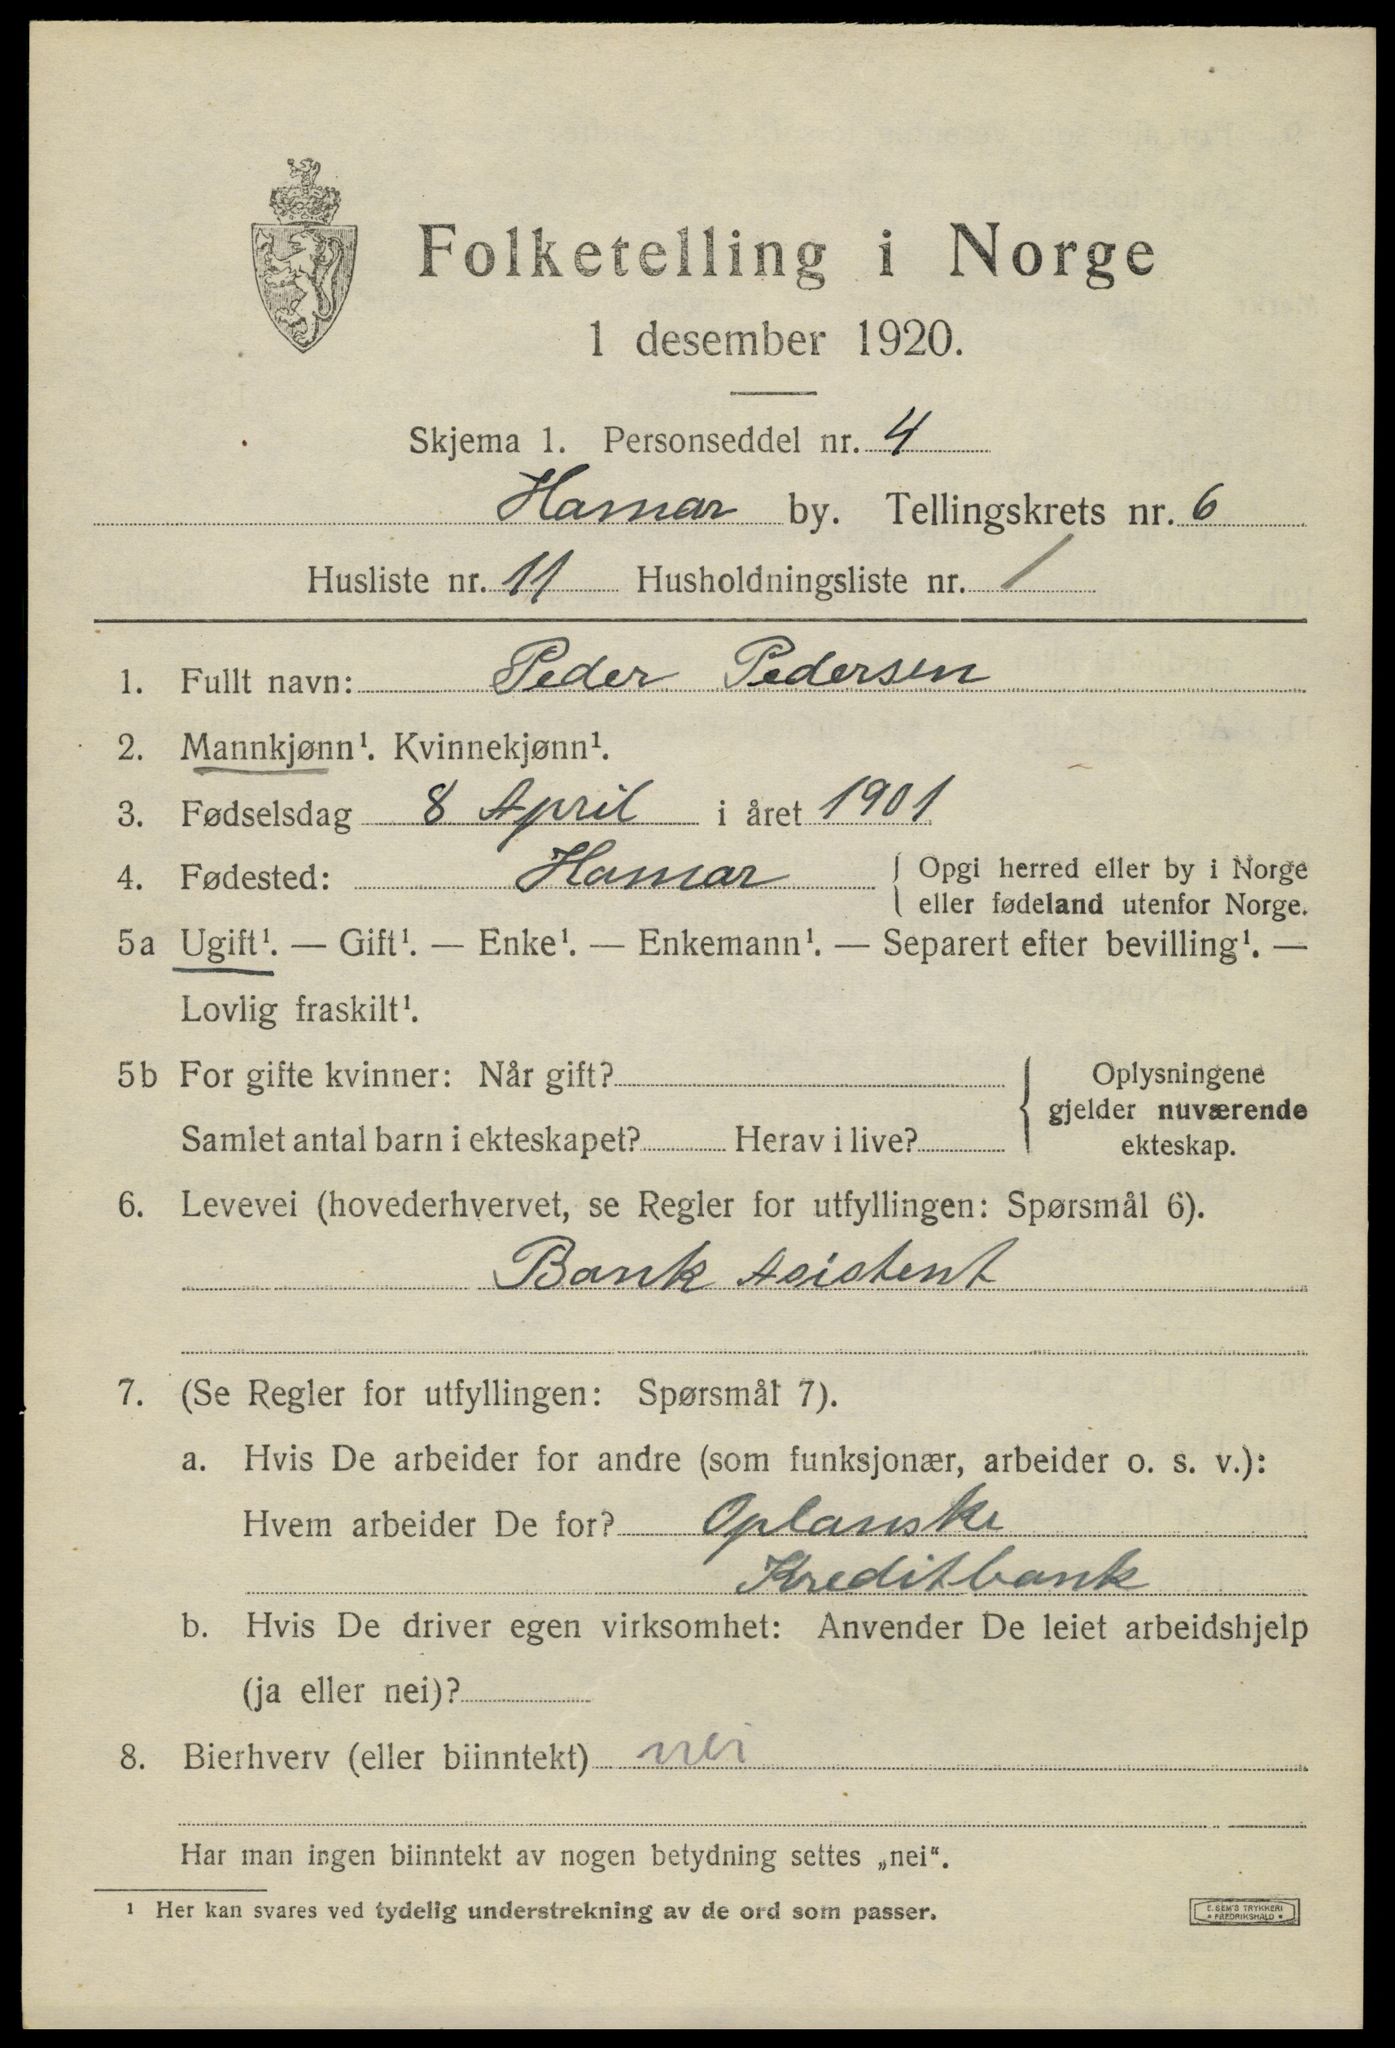 Folketelling i Norge
1 desember 1920.
Skjema 1. Personseddel nr. 4
Hamar by. Tellingskrets nr. 6
Husliste nr. 11 Husholdningsliste nr. 1
1. Fullt navn: Peder Pedersen
2. Mannkjønn¹. Kvinnekjønn¹.
3. Fødselsdag 8 April i året 1901
4. Fødested: Hamar { Opgi herred eller by i Norge
eller fødeland utenfor Norge.
5a Ugift¹. — Gift¹. — Enke¹. — Enkemann¹. — Separert efter bevilling¹. —
Lovlig fraskilt¹.
5b For gifte kvinner: Når gift? { Oplysningene
gjelder nuværende
Samlet antal barn i ekteskapet? Herav i live? ekteskap.
6. Levevei (hovederhvervet, se Regler for utfyllingen: Spørsmål 6).
Bank Asistent
7. (Se Regler for utfyllingen: Spørsmål 7).
a. Hvis De arbeider for andre (som funksjonær, arbeider o. s. v.):
Hvem arbeider De for? Oplanske
Kreditbank
b. Hvis De driver egen virksomhet: Anvender De leiet arbeidshjelp
(ja eller nei)?
8. Bierhverv (eller biinntekt) nei
Har man ingen biinntekt av nogen betydning settes „nei".
¹ Her kan svares ved tydelig understrekning av de ord som passer.
E. SEM'S TRYKKERI
* FREDRIKSHALD *